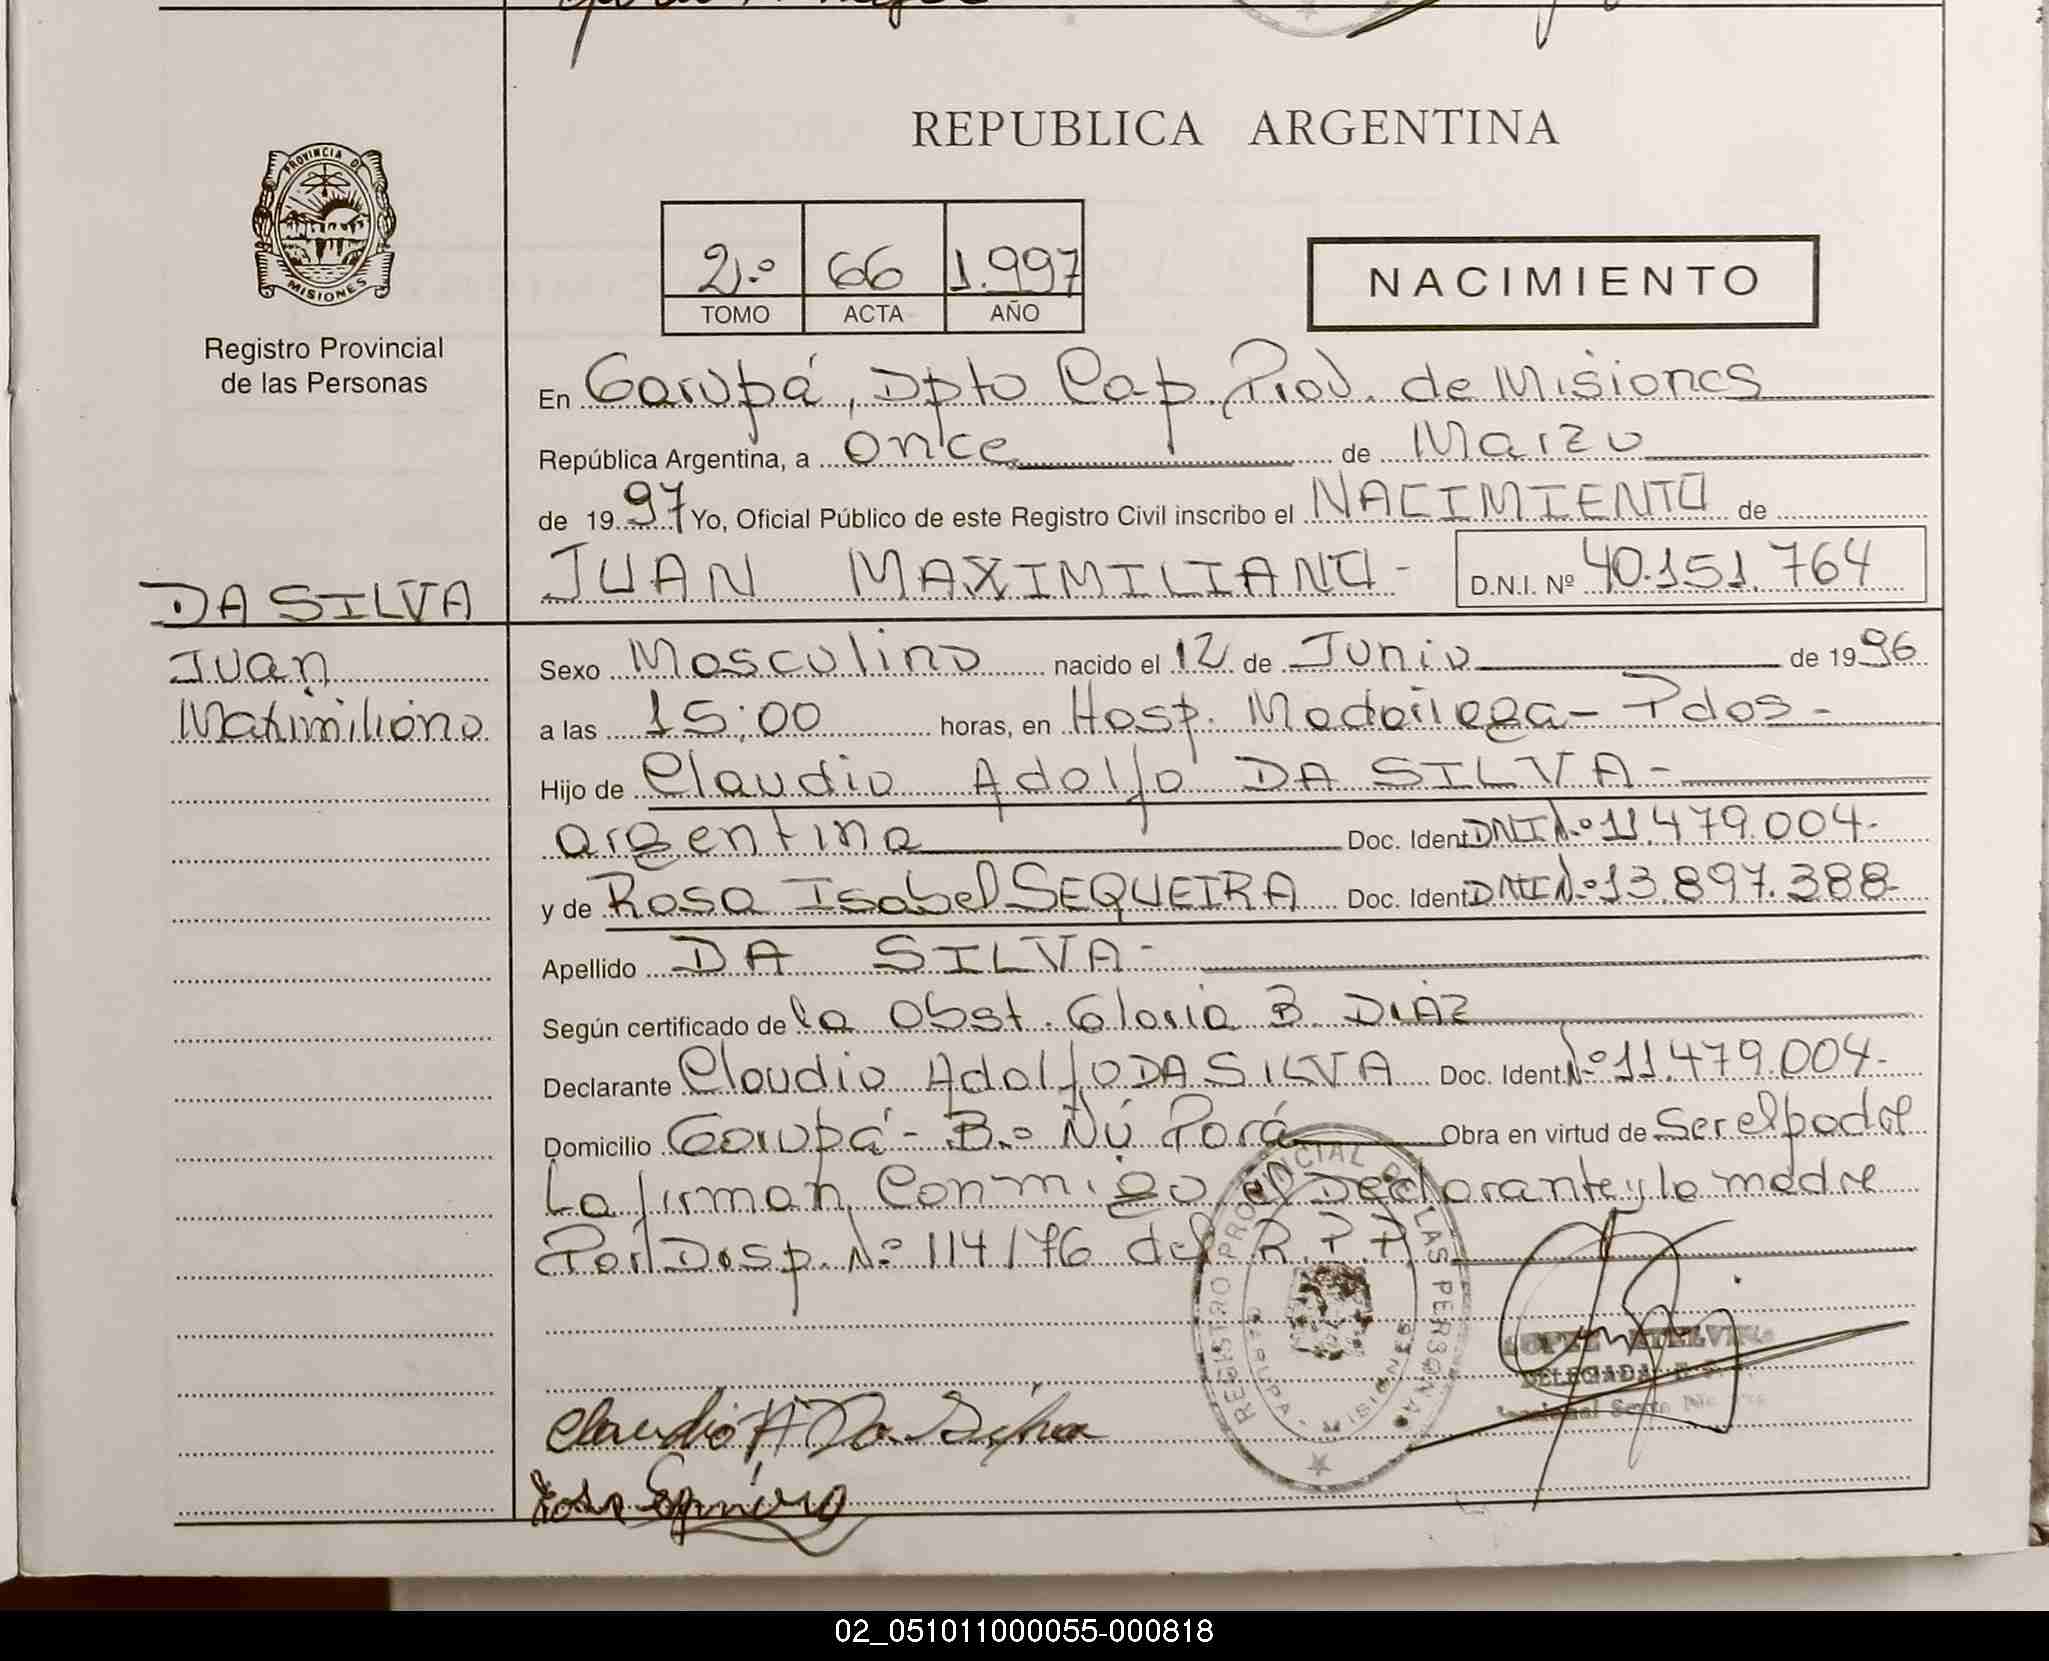 REPUBLICA ARGENTINA
PROVINCIA DE
MISIONES
Registro Provincial
de las Personas
2º 66 1.997
TOMO ACTA AÑO
NACIMIENTO
En Garupá, Dpto Cap. Prov. de Misiones
República Argentina, a once de Marzo
de 1997 Yo, Oficial Público de este Registro Civil inscribo el NACIMIENTO de
JUAN MAXIMILIANO - D.N.I. Nº 40.151.764
DA SILVA
Juan
Maximiliano
Sexo Masculino nacido el 12 de Junio de 1996
a las 15:00 horas, en Hosp. Madariaga - Pdas -
Hijo de Claudio Adolfo DA SILVA -
argentina Doc. Ident. DNI Nº 11.479.004-
y de Rosa Isabel SEQUEIRA Doc. Ident. DNI Nº 13.897.388-
Apellido DA SILVA -
Según certificado de la Obst. Gloria B. DIAZ
Declarante Claudio Adolfo DA SILVA Doc. Ident. Nº 11.479.004-
Domicilio Garupá - Bº Ñú Porá Obra en virtud de Ser el padre
La firman Conmigo el Declarante y la madre
Por Disp. Nº 114/76 del R.P.P.
REGISTRO PROVINCIAL DE LAS PERSONAS
GARUPA MISIONES
LOPEZ
DELEGADA
Claudio A Da Silva
02_051011000055-000818